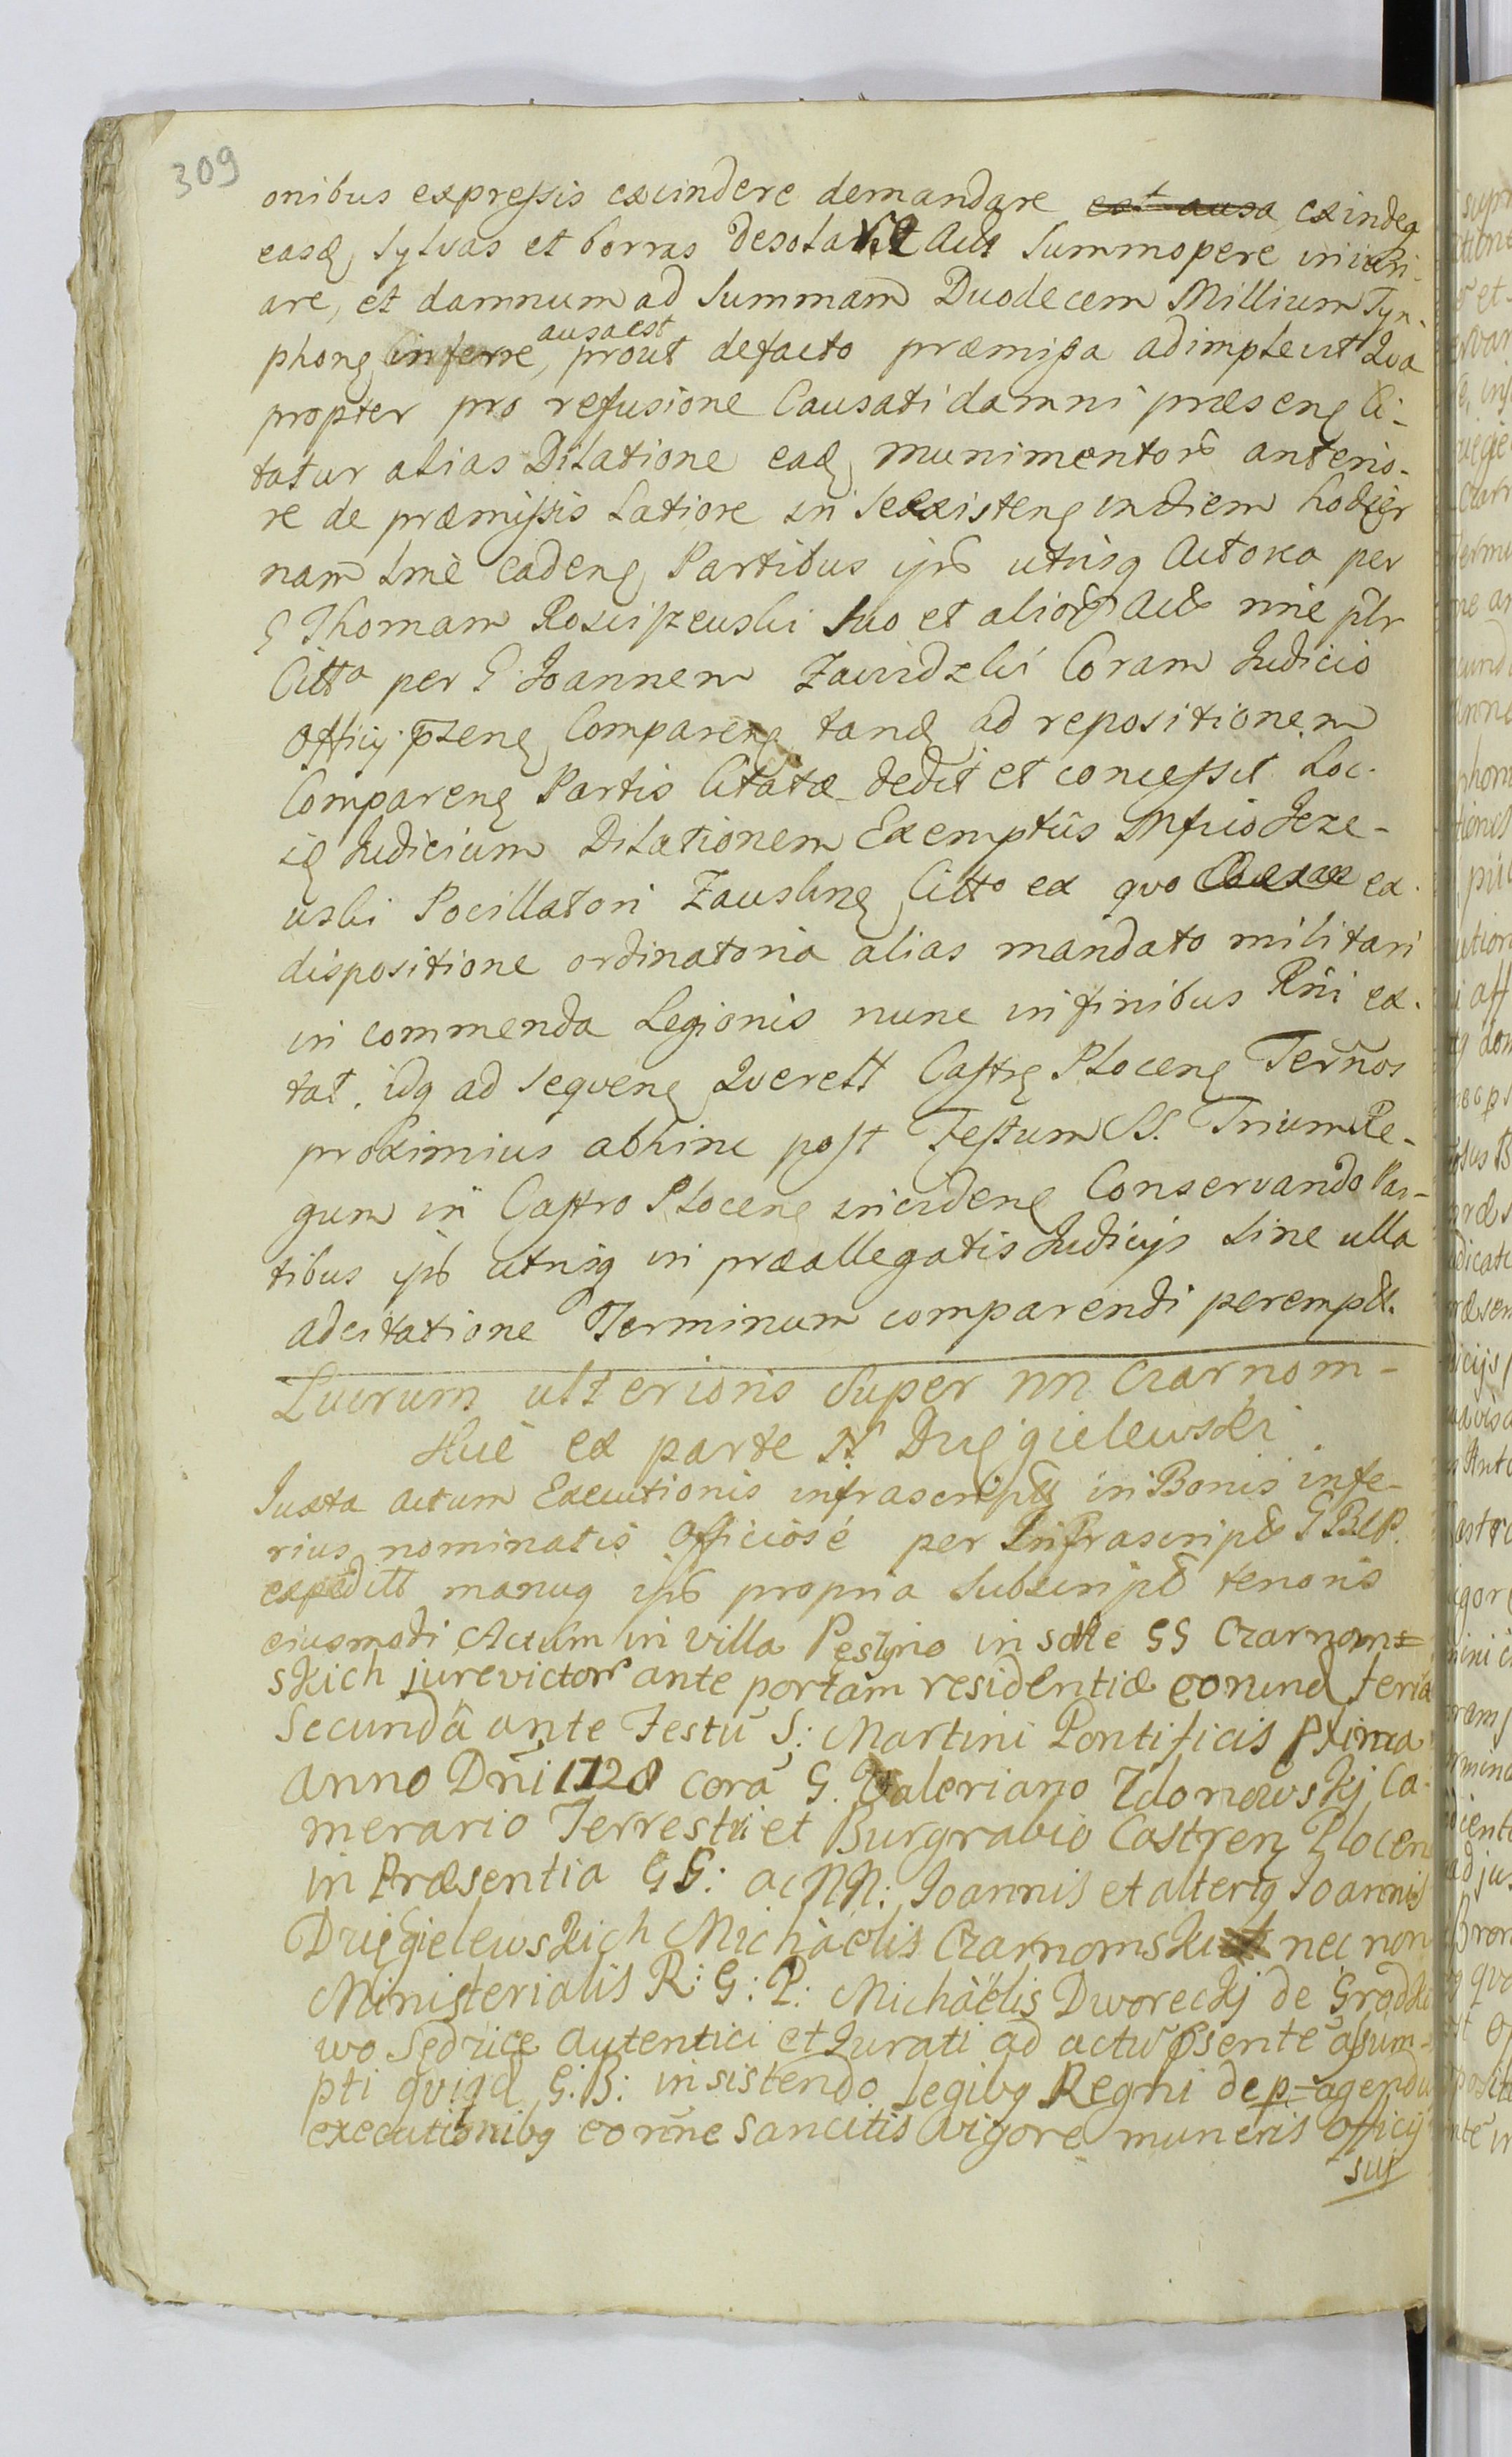 309
onibus expressis excindere demandare est ausa exindeq
easq sylvas et borras desolavit Act summopere iniuri-
are, et damnum ad summam Duodecem Millium Tyn-
phonę inferre, ausa est prout defacto præmissa adimplevit Qua
propter pro refusione Causati damni præsenę Ci-
tatur alias Dilatione eadę munimentorũ anterio-
re de præmissis Latiore in se exsistenę in diem hodier
nam Lmè cadenę Partibus ipīs utrisq Actorea per
G Thomam Rosciszewski suo et aliorũ Act nnie plr
Citta per G Joannem Zawidzki Coram Judicio
Officÿ przenę Comparenę tandę ad repositionem
Comparenę Partis Citatæ dedit et concessit Loc.
ię Judicium Dilationem Exemptũs
uski Pocillatori Zauskrnę Citto ex quo ex
dispositione ordinatoria alias mandato militari
in commenda Legionis nunc in finibus Rñi ex.
tat. idq ad sequenę Querell Castrę Plocenę Terños
proximius abhinc post Festum SS. Trium Re-
gum in Castro Plocenę incidenę Conservando Par-
tibus ipīs utrisq in præallegatis Judicÿs sine ulla
adcitatione Terminum comparendi perempt.
Lucrum ulterioris Super nn Czarnom-
skie ex parte N Drięgielewski
Juxta actum Executionis infrascriptę in Bonis infe-
rius nominatis Officiosé per Infrascript G BCP.
expeditt manuq ipīs propria subscript tenoris
eiusmodi Actum in villa Pęsyno in sorte GG Czarnom=
skich jurevictorũ ante portam residentiæ eorund feria
Secundâ ante Festũ S: Martini Pontificis Pxima
anno Dñi 1728 corã G. Valeriano Zdonowskj Ca-
merario Terrestri et Burgrabio Castrenę Plocen
in Præsentia GG: ac NN: Joannis et alterię Joannis
Drięgielewskich Michàelis Czarnomski nec non
Ministerialis R: G: P: Michàëlis Dworeckj de Grodki
wo Sędzice autentici et Jurati ad actũ psentē assum-
pti quiqd G. B: insistendo legibq Regni de p=agendi
executionibq eorñne sancitis vigore muneris officÿ
suj